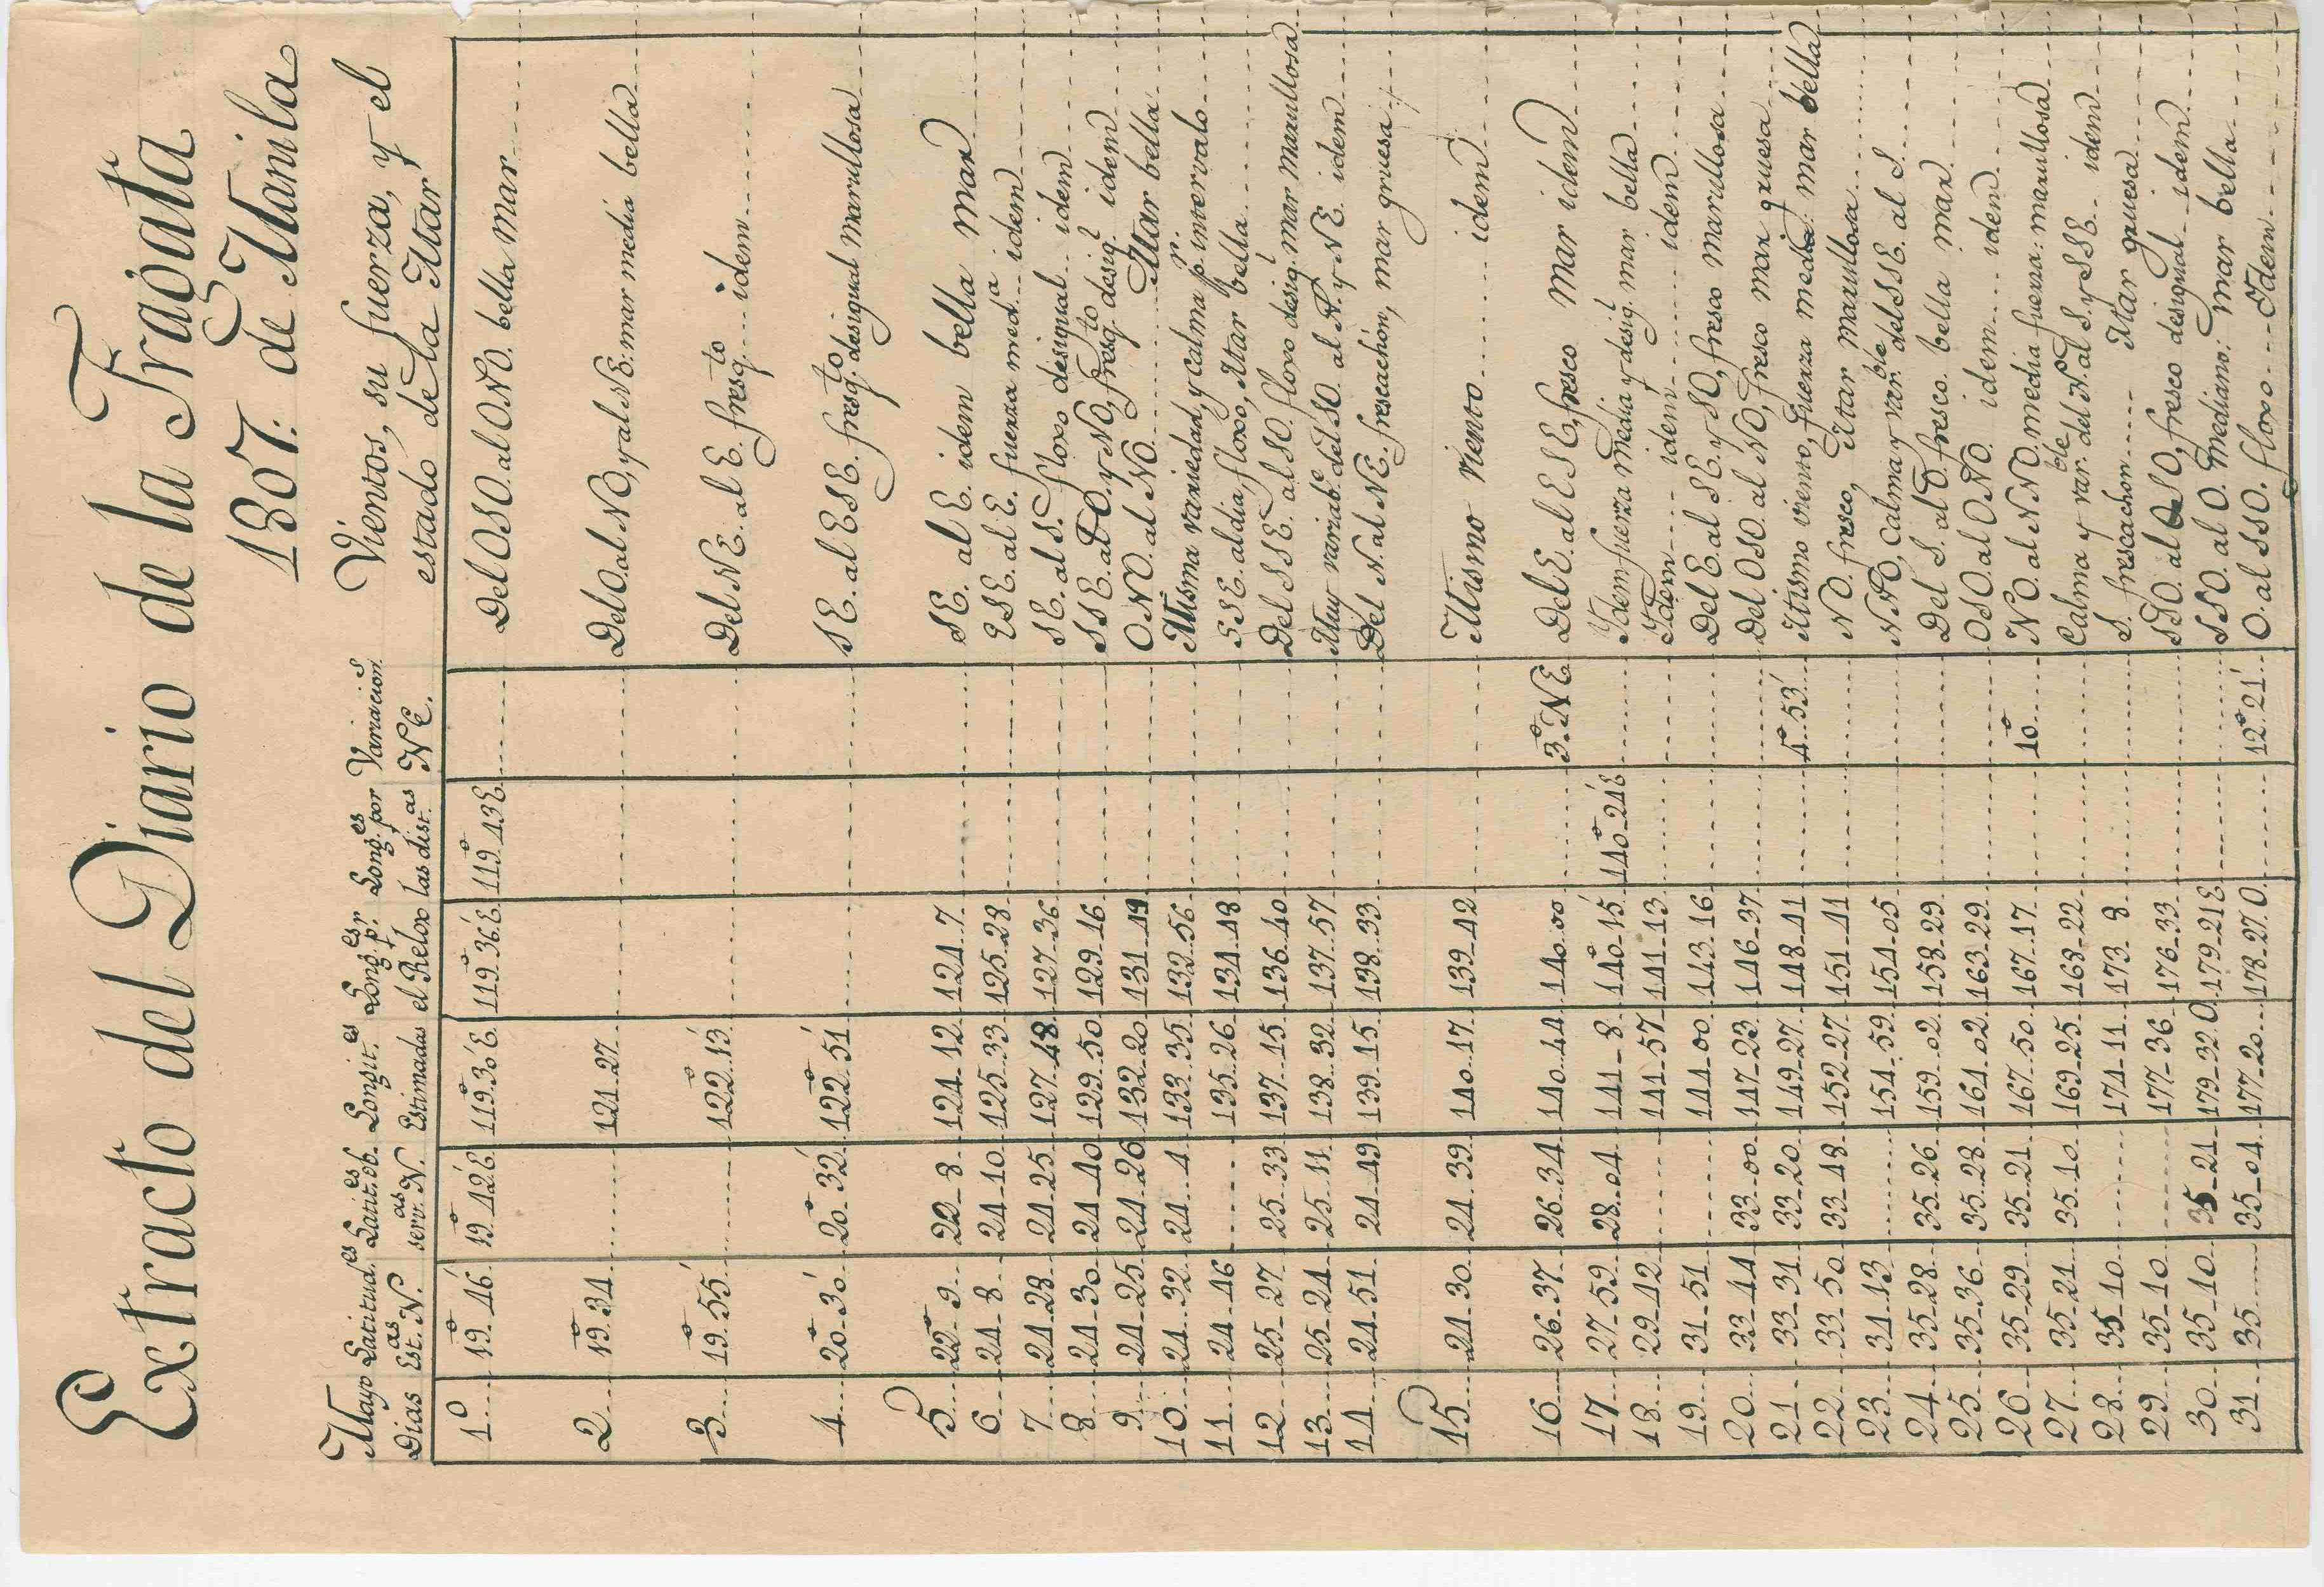 Extracto del Diario de la Fragata
1807: de Manila
Mayo Latitud.es Latit.es ob Longit.es Long.es p.r Long.es por Variacion.s Vientos, su fuerza, y el
Dias Est.as N. serv.as N. Estimadas el Relox las dist.as NE. estado de la Mar
1º 19º 46' 19º 42'E 119º 30'E. 119º 36'E 119º 43'E. Del OSO. al ONO. bella mar
2 19º 34 121 27 Del O. al NO, y al NE: mar media bella
3 19º 55' 122º 13' Del NE. al E. fresq.to idem
4 20º 30' 20º 32' 122º 51' SE. al ESE. fresq.to desigual marullosa
5 22º 9 22 8 124 12 124 7 SE. al E. idem bella mar
6 24 8 24 10 125 33 125 28 ESE. al E. fuerza med.a idem
7 24 28 24 25 127 48 127 36 SE. al S. floxo desigual idem
8 24 30 24 40 129 50 129 16 SSE. al O. y NO, fresq.to desig.l idem
9 24 25 24 26 132 20 131 49 ONO. al NO. Mar bella
10 24 32 24 4 133 35 132 56 Misma variedad, y calma p.r intervalo
11 24 46 135 26 134 48 SSE. al dia, floxo, Mar bella
12 25 27 25 33 137 15 136 40 Del SSE. al SO. floxo desig.l mar marullosa
13 25 24 25 11 138 32 137 57 Muy variab.e del SO. al N. y NE. idem
14 24 51 24 49 139 15 138 33 Del N. al NE. frescachón, mar gruesa
15 24 30 24 39 140 17 139 42 Mismo viento idem
16 26 37 26 34 140 44 140 00 3º NE. Del E. al ESE, fresco mar idem
17 27 59 28 04 141 8 140º 15' 140º 24'E Idem fuerza media y desig.l mar bella
18 29 42 141 57 141 13 Idem idem idem
19 31 51 144 00 143 16 Del E. al SE. y SO, fresco marullosa
20 33 44 33 00 147 23 146 37 Del OSO. al NO, fresco mar gruesa
21 33 31 33 20 149 27 148 41 4º 53' Mismo viento, fuerza media: mar bella
22 33 50 33 48 152 27 151 41 NO. fresco, Mar marullosa
23 34 13 154 59 154 05 NNO, Calma y var.ble del SSE. al S.
24 35 28 35 26 159 02 158 29 Del S. al O. fresco bella mar
25 35 36 35 28 164 02 163 29 OSO. al ONO. idem idem
26 35 29 35 21 167 50 167 17 10º NO. al NNO. media fuerza: marullosa
27 35 21 35 10 169 25 168 22 Calma y var.ble del N. al S. y SSE. idem
28 35 10 174 11 173 8 S. frescachon Mar gruesa
29 35 10 177 36 176 33 SSO. al OSO, fresco desigual idem
30 35 10 35 21 179 32 O 179 21 E SSO. al O. mediano: mar bella
31 35 35 04 177 20 178 27 O. 12º 21' O. al SSO. floxo Idem